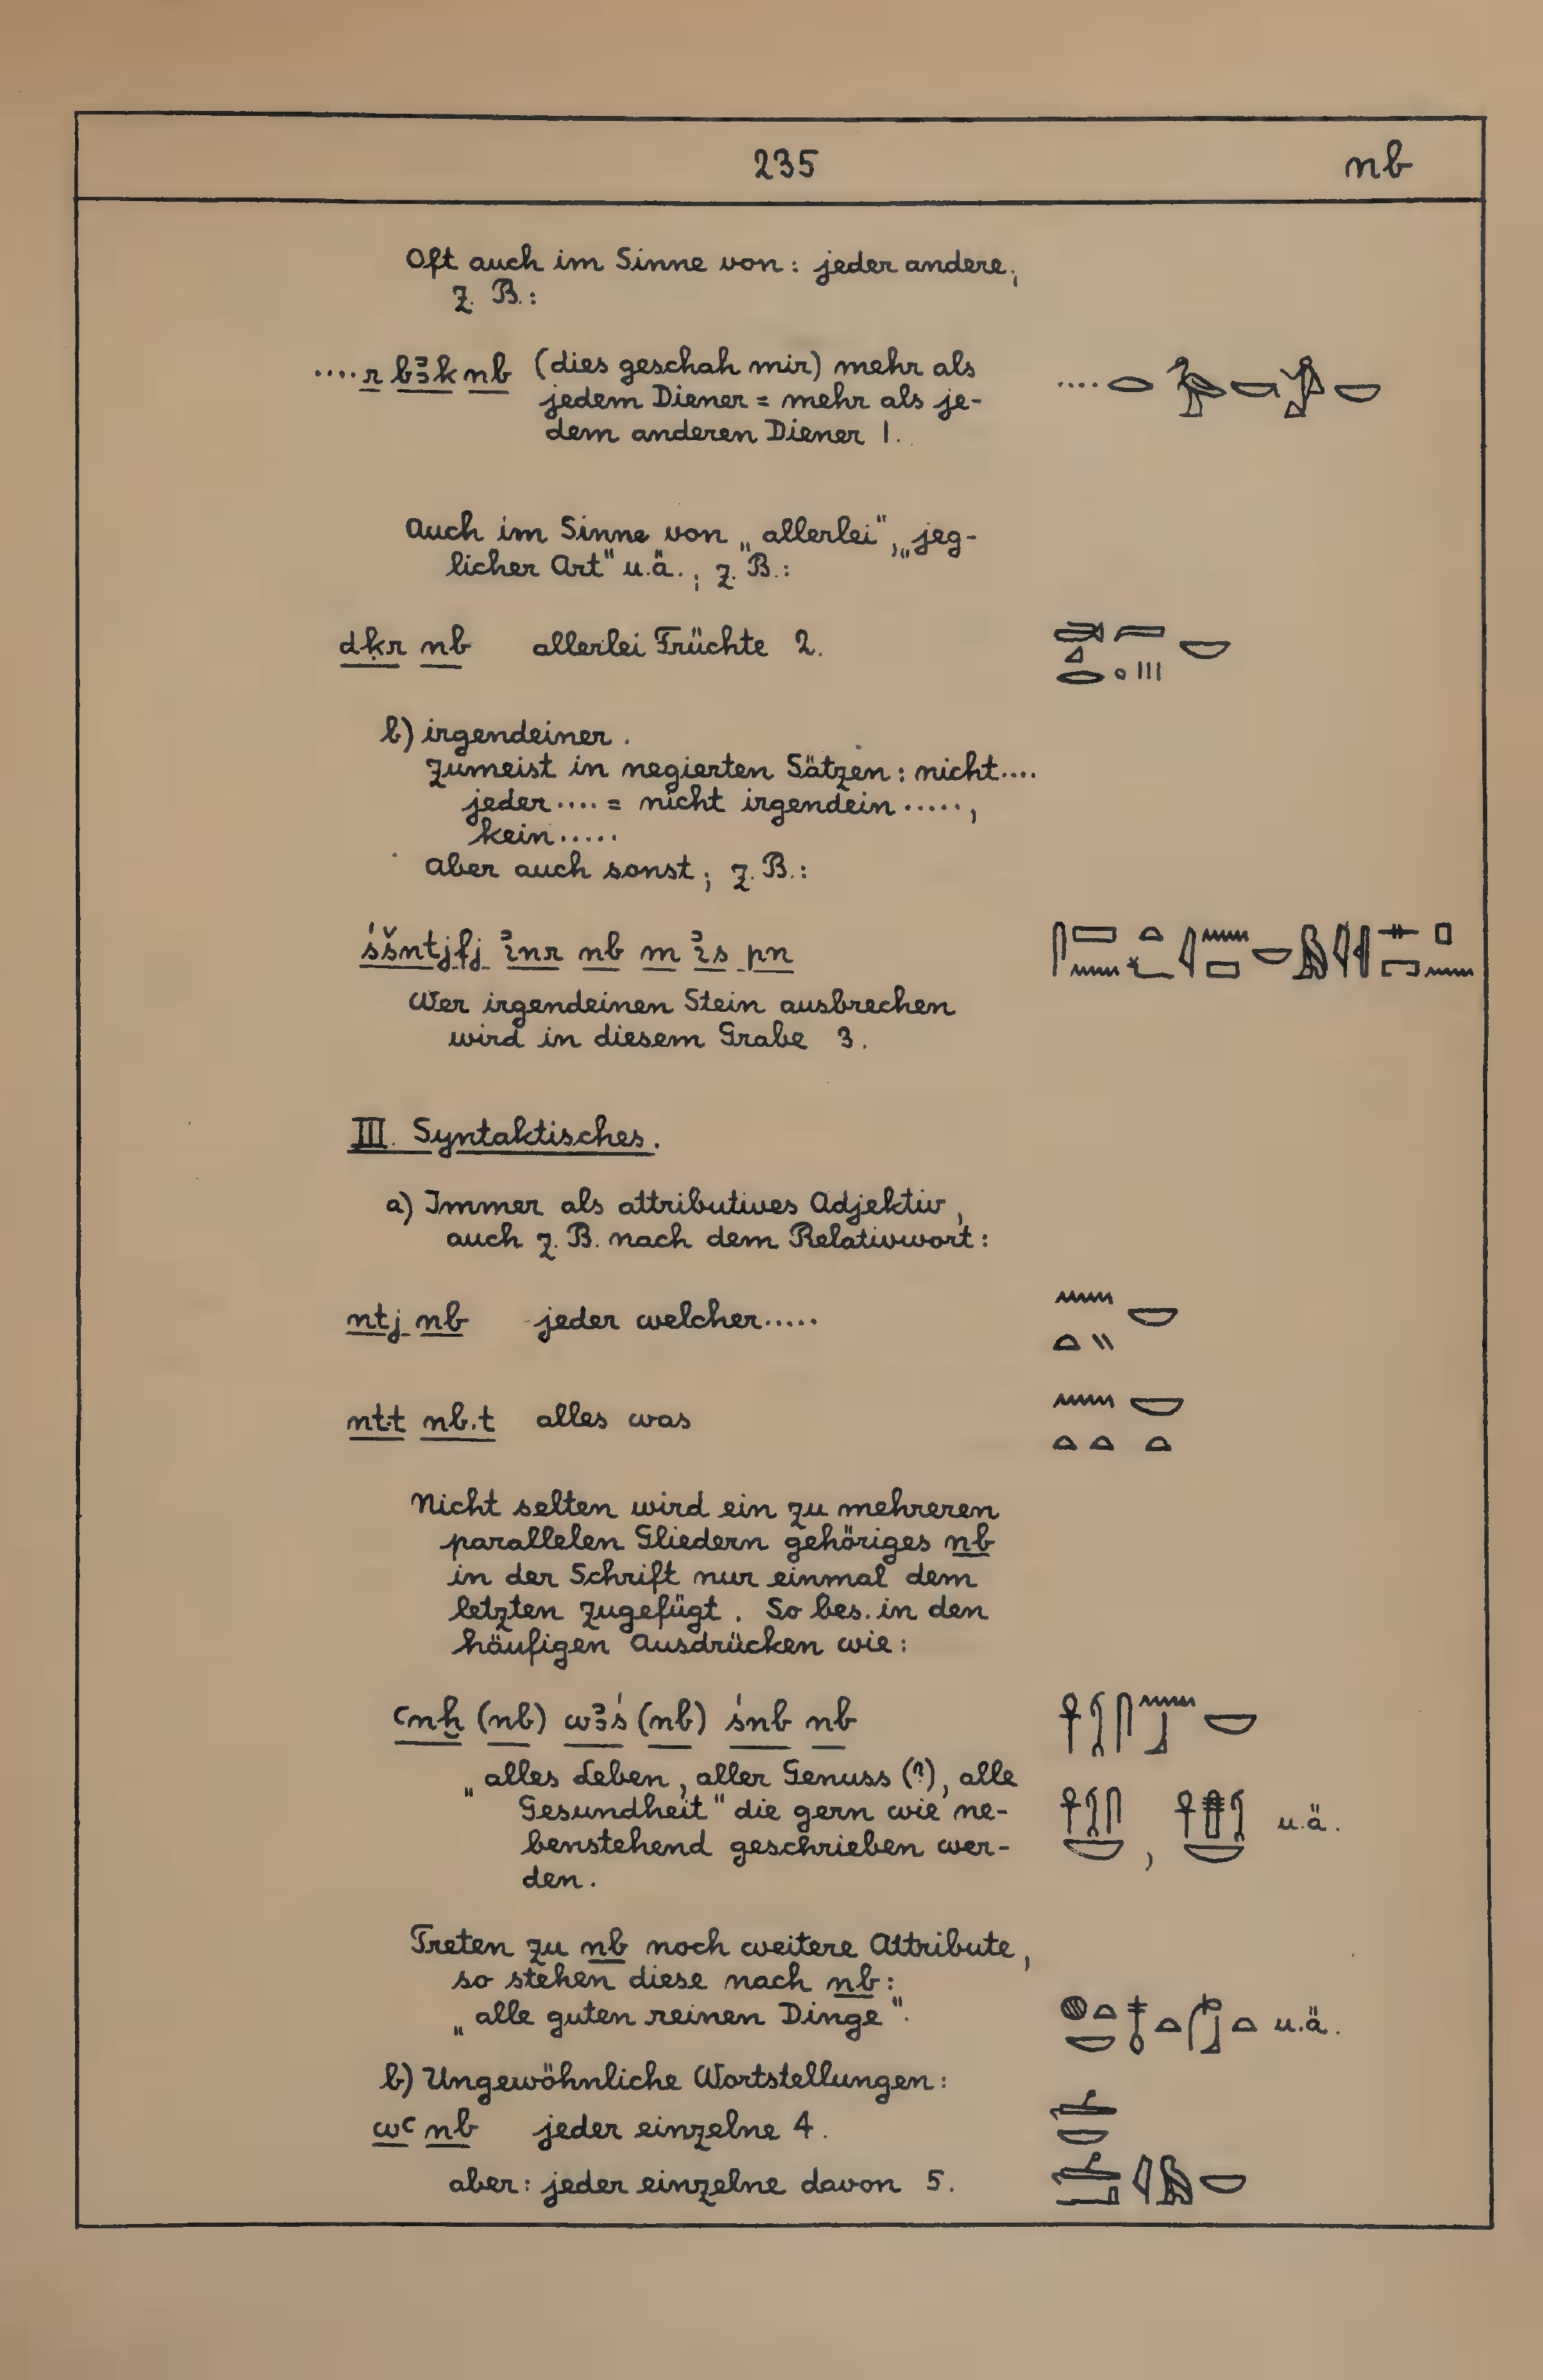 235 nb
Oft auch im Sinne von: jeder andere;
z. B.:
.... r bꜣk nb (dies geschah mir) mehr als
jedem Diener = mehr als je-
dem anderen Diener 1.
Auch im Sinne von „allerlei“, „jeg-
licher Art“ u.ä.; z. B.:
dḳr nb allerlei Früchte 2.
b) irgendeiner.
Zumeist in negierten Sätzen: nicht....
jeder.... = nicht irgendein.....,
kein.....
Aber auch sonst; z. B.:
śšntjfj ꞽnr nb m ꞽs pn
Wer irgendeinen Stein ausbrechen
wird in diesem Grabe 3.
III. Syntaktisches.
a) Immer als attributives Adjektiv,
auch z. B. nach dem Relativwort:
ntj nb jeder welcher.....
nt.t nb.t alles was
Nicht selten wird ein zu mehreren
parallelen Gliedern gehöriges nb
in der Schrift nur einmal dem
letzten zugefügt. So bes. in den
häufigen Ausdrücken wie:
ꜥnḫ (nb) wꜣś (nb) śnb nb
„alles Leben, aller Genuss (?), alle
Gesundheit“ die gern wie ne-
benstehend geschrieben wer- , u.ä.
den.
Treten zu nb noch weitere Attribute,
so stehen diese nach nb:
„alle guten reinen Dinge“. u.ä.
b) Ungewöhnliche Wortstellungen:
wꜥ nb jeder einzelne 4.
aber: jeder einzelne davon 5.